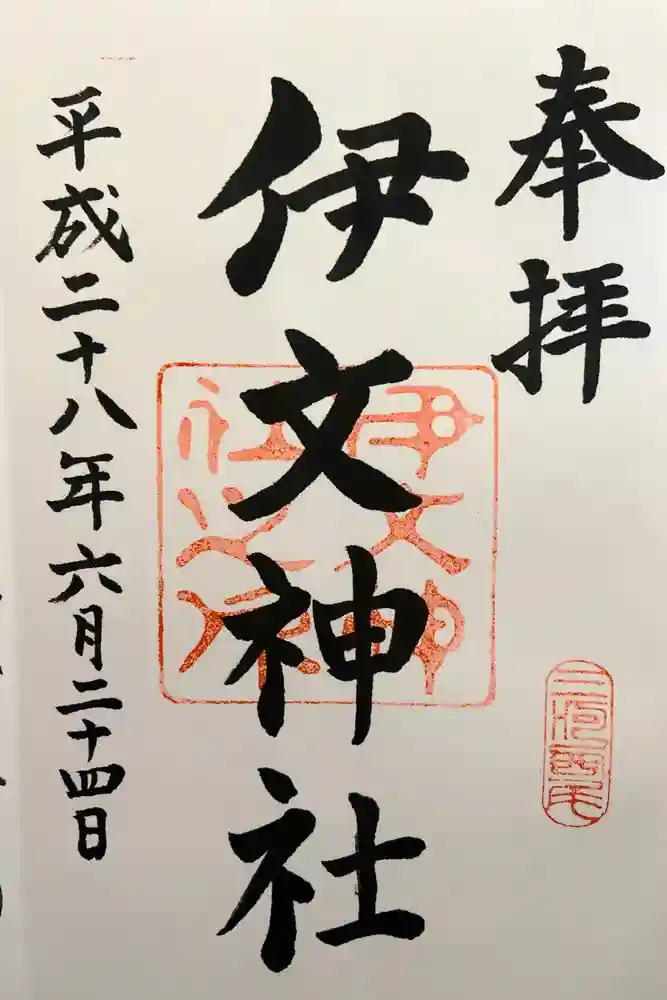 奉拝
伊文神社
伊文神
社之印
三河西尾
平成二十八年六月二十四日